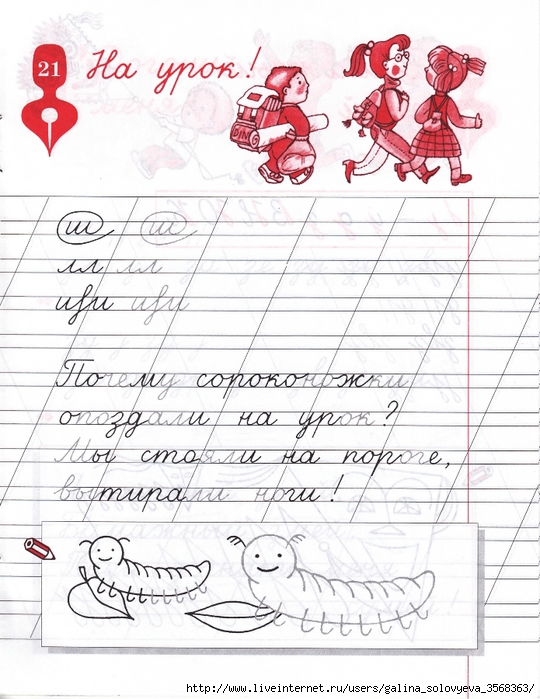 21
На урок!
ш ш
лл лл
иfи иfи
Почему сороконожки
опоздали на урок?
Мы стояли на пороге,
вытирали ноги!
http://www.liveinternet.ru/users/galina_solovyeva_3568363/